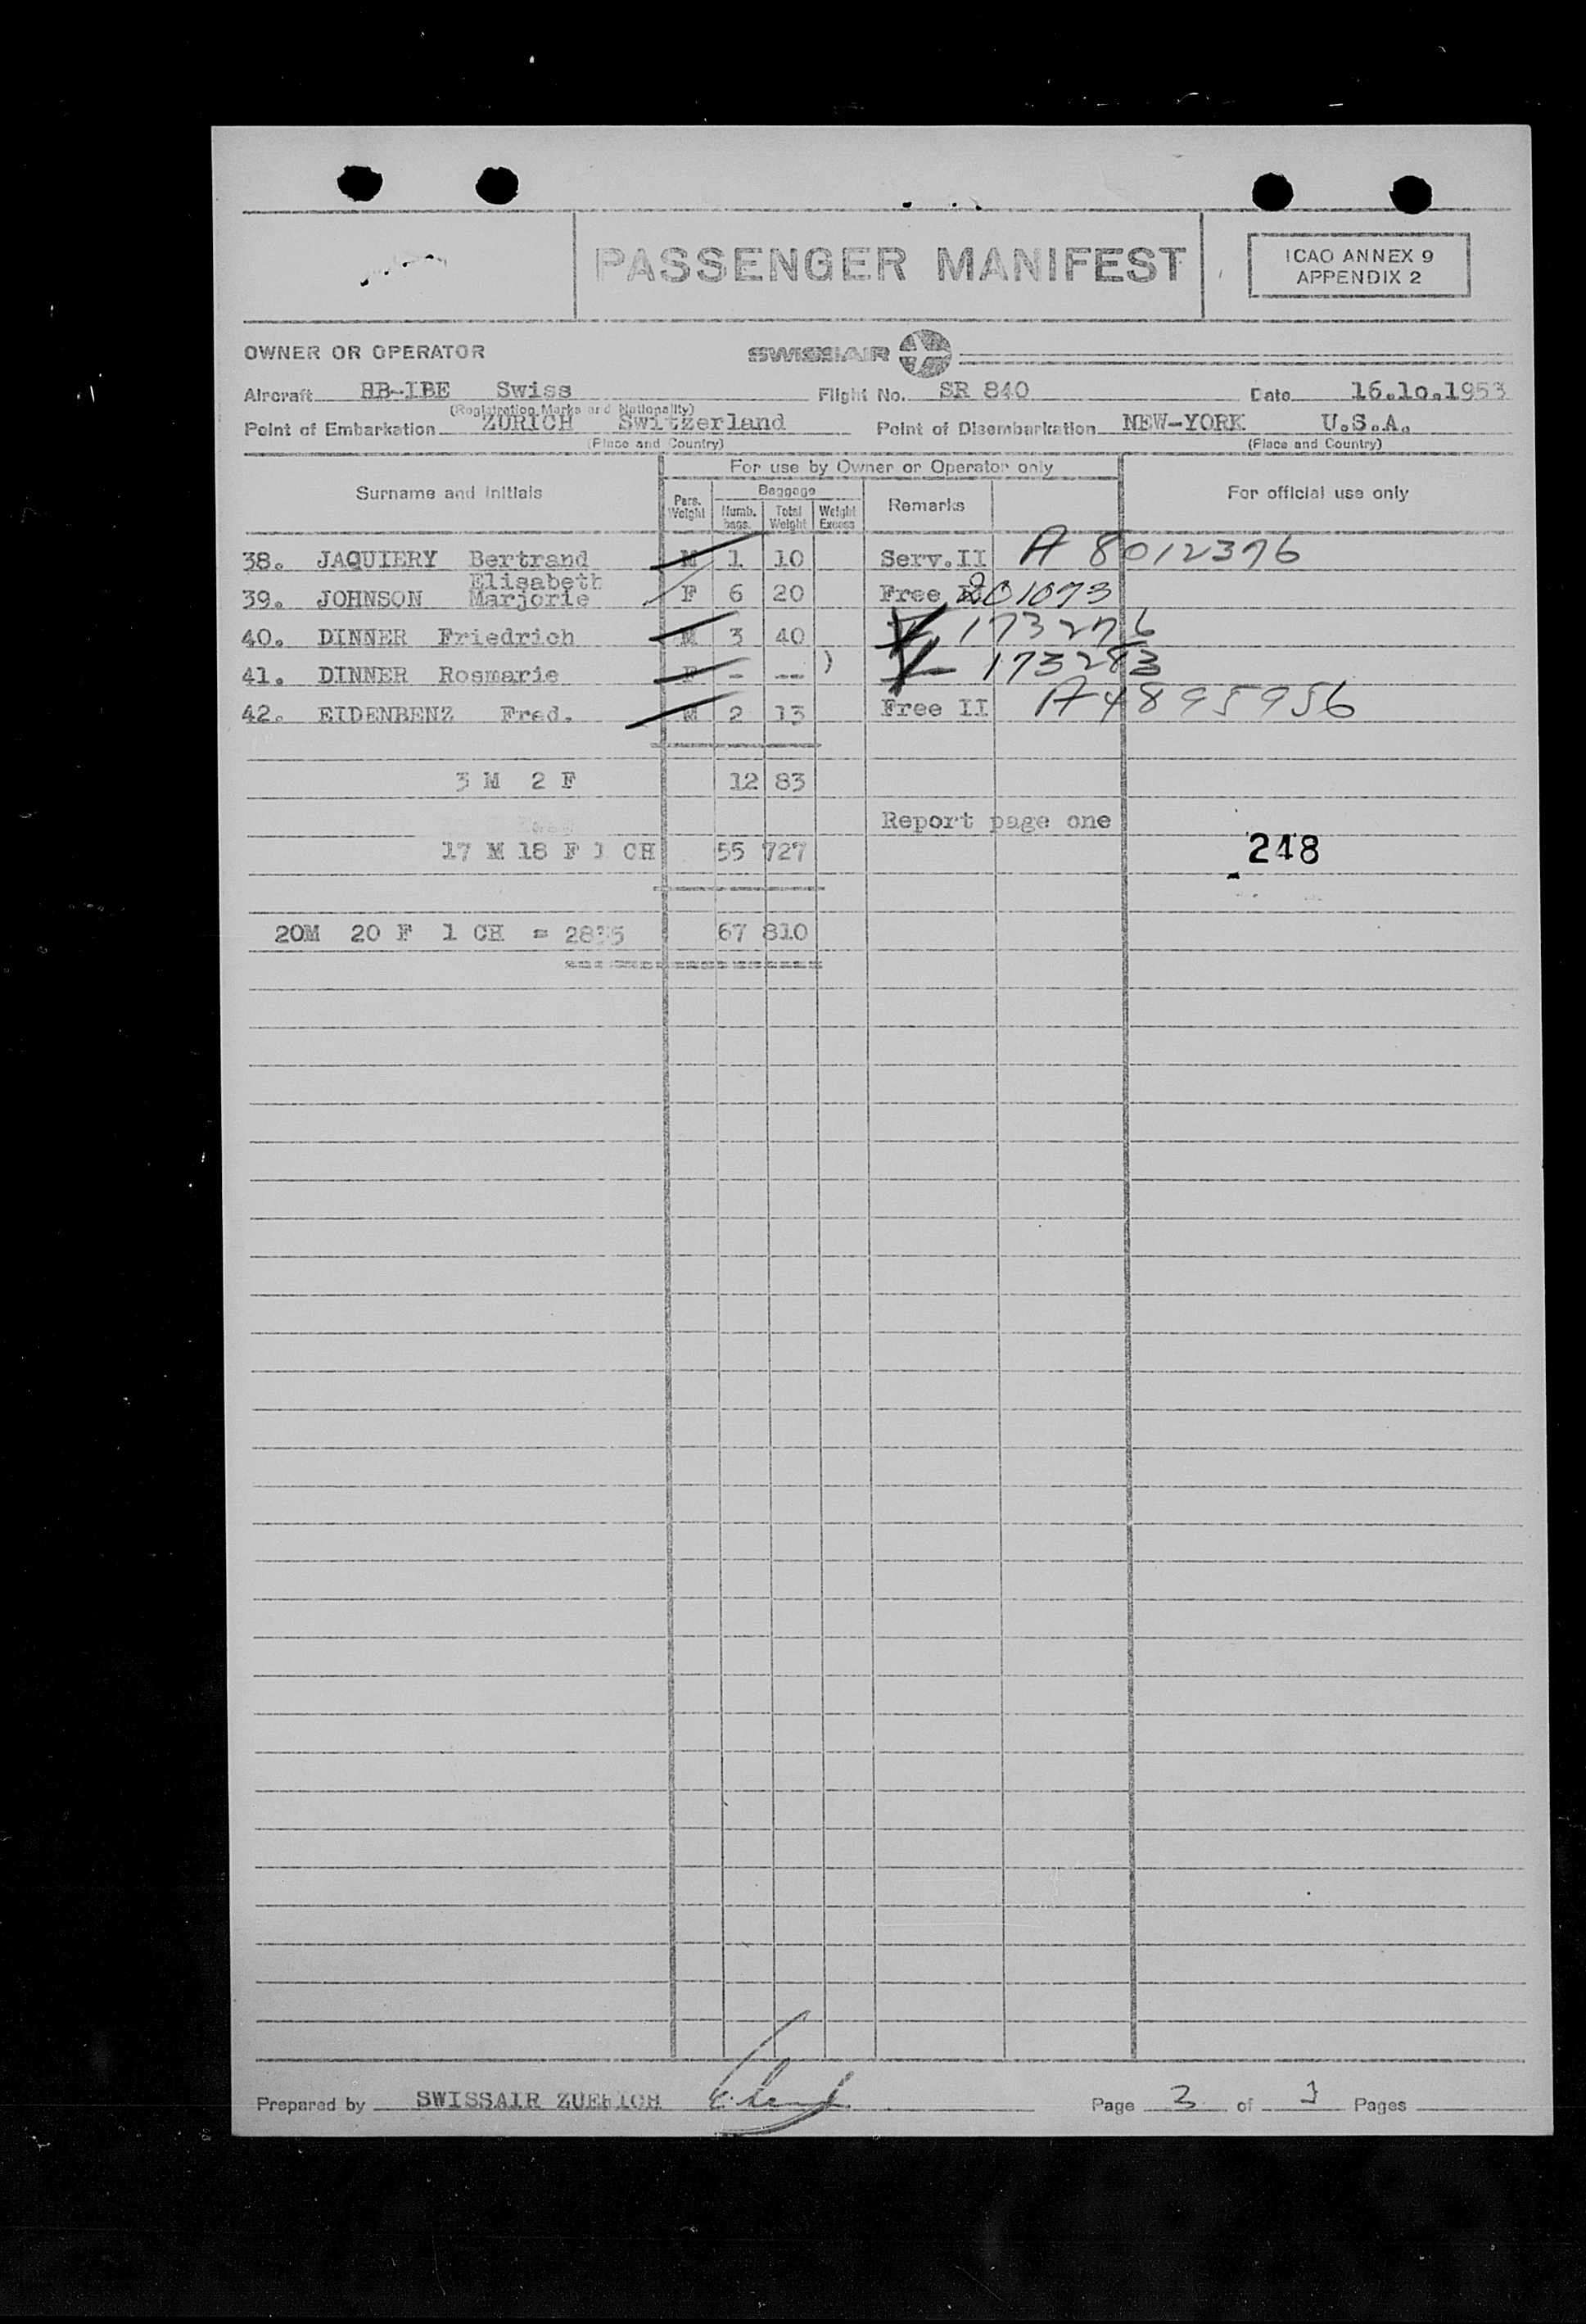 PASSENGER MANIFEST
ICAO ANNEX 9
APPENDIX 2
OWNER OR OPERATOR SWISSAIR
Aircraft HB-IBE Swiss Flight No. SR 840 Date 16.10.1953
(Registration Marks and Nationality)
Point of Embarkation ZURICH Switzerland Point of Disembarkation NEW-YORK U.S.A.
(Place and Country) (Place and Country)
For use by Owner or Operator only
Surname and initials Pers. Weight Baggage Numb. bags. Total Weight Weight Excess Remarks For official use only
38. JAQUIERY Bertrand M 1 10 Serv.II A 8012376
Elisabeth
39. JOHNSON Marjorie F 6 20 Free 201073
40. DINNER Friedrich M 3 40 173276
41. DINNER Rosmarie F - -- ) 173283
42. EIDENBENZ Fred. M 2 13 Free II A4895956
3 M 2 F 12 83
Report page one
17 M 18 F 1 CH 55 727
248
20M 20 F 1 CH = 2835 67 810
Prepared by SWISSAIR ZUERICH Page 3 of 3 Pages